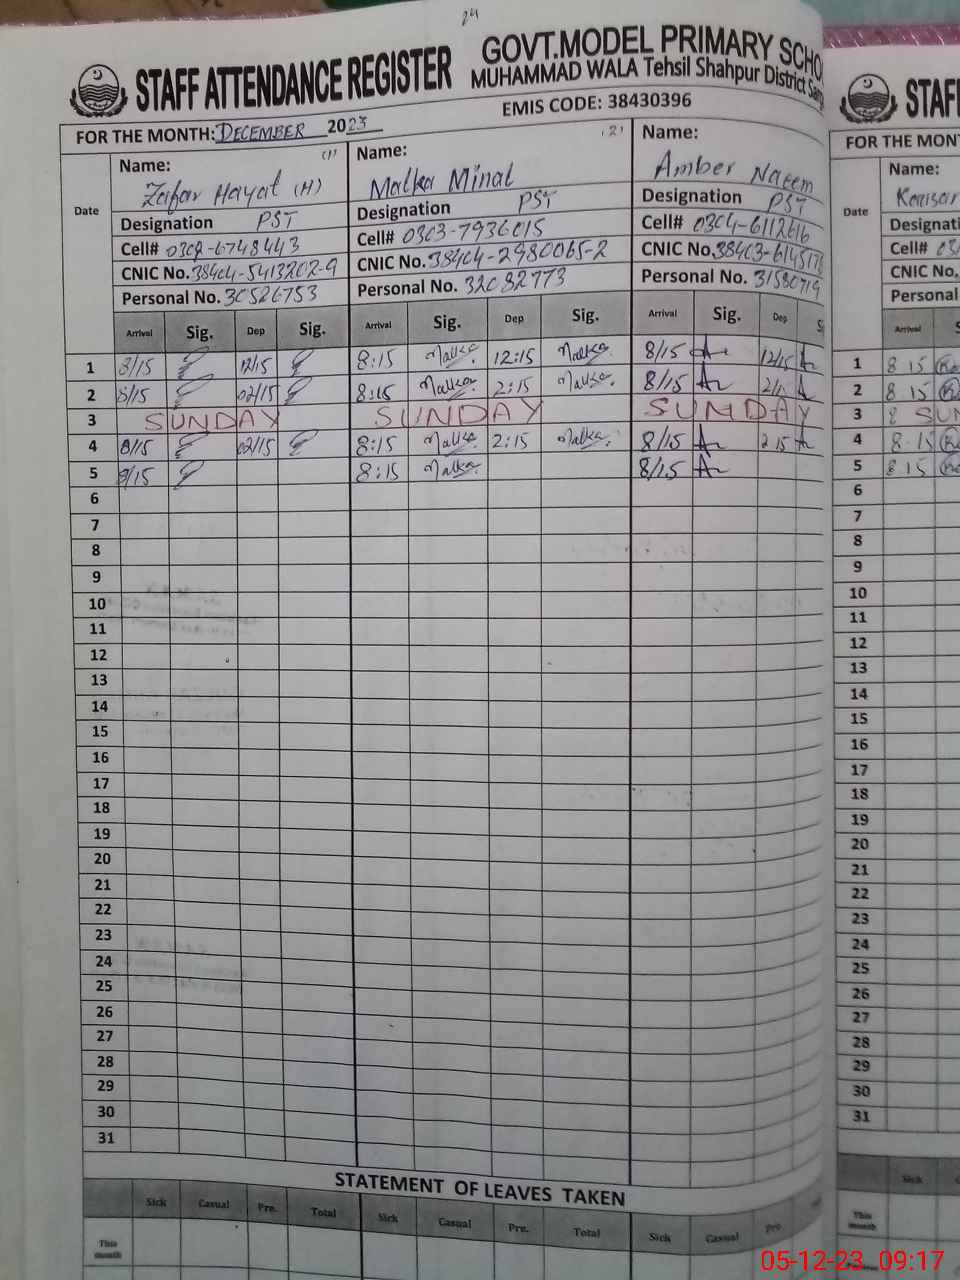 24
STAFF ATTENDANCE REGISTER
GOVT.MODEL PRIMARY SCHO
MUHAMMAD WALA Tehsil Shahpur District Sarg
EMIS CODE: 38430396
FOR THE MONTH: DECEMBER 2023
Date
Name: (1)
Zafar Hayat (H)
Designation PST
Cell# 0302-6748443
CNIC No. 38404-5413202-9
Personal No. 30526753
Name: (2)
Malka Minal
Designation PST
Cell# 0303-7936015
CNIC No. 38404-2980065-2
Personal No. 32082773
Name:
Amber Naeem
Designation PST
Cell# 0304-6112616
CNIC No. 38403-614517
Personal No. 31580719
Arrival Sig. Dep Sig. Arrival Sig. Dep Sig. Arrival Sig. Dep S
1 8/15 12/15 8:15 Malka 12:15 Malka 8/15 12/15
2 8/15 02/15 8:15 Malka 2:15 Malka 8/15 2/15
3 SUNDAY SUNDAY SUNDAY
4 8/15 02/15 8:15 Malka 2:15 Malka 8/15 2 15
5 8/15 8:15 Malka 8/15
6
7
8
9
10
11
12
13
14
15
16
17
18
19
20
21
22
23
24
25
26
27
28
29
30
31
STATEMENT OF LEAVES TAKEN
Sick Casual Pre. Total Sick Casual Pre. Total Sick Casual Pre
This month
STAF
FOR THE MON
Date
Name:
Designati
Cell# 03
CNIC No.
Personal
Arrival S
1 8 15
2 8 15
3 SUN
4 8.15
5 8 15
6
7
8
9
10
11
12
13
14
15
16
17
18
19
20
21
22
23
24
25
26
27
28
29
30
31
Sick
This month
05-12-23 09:17